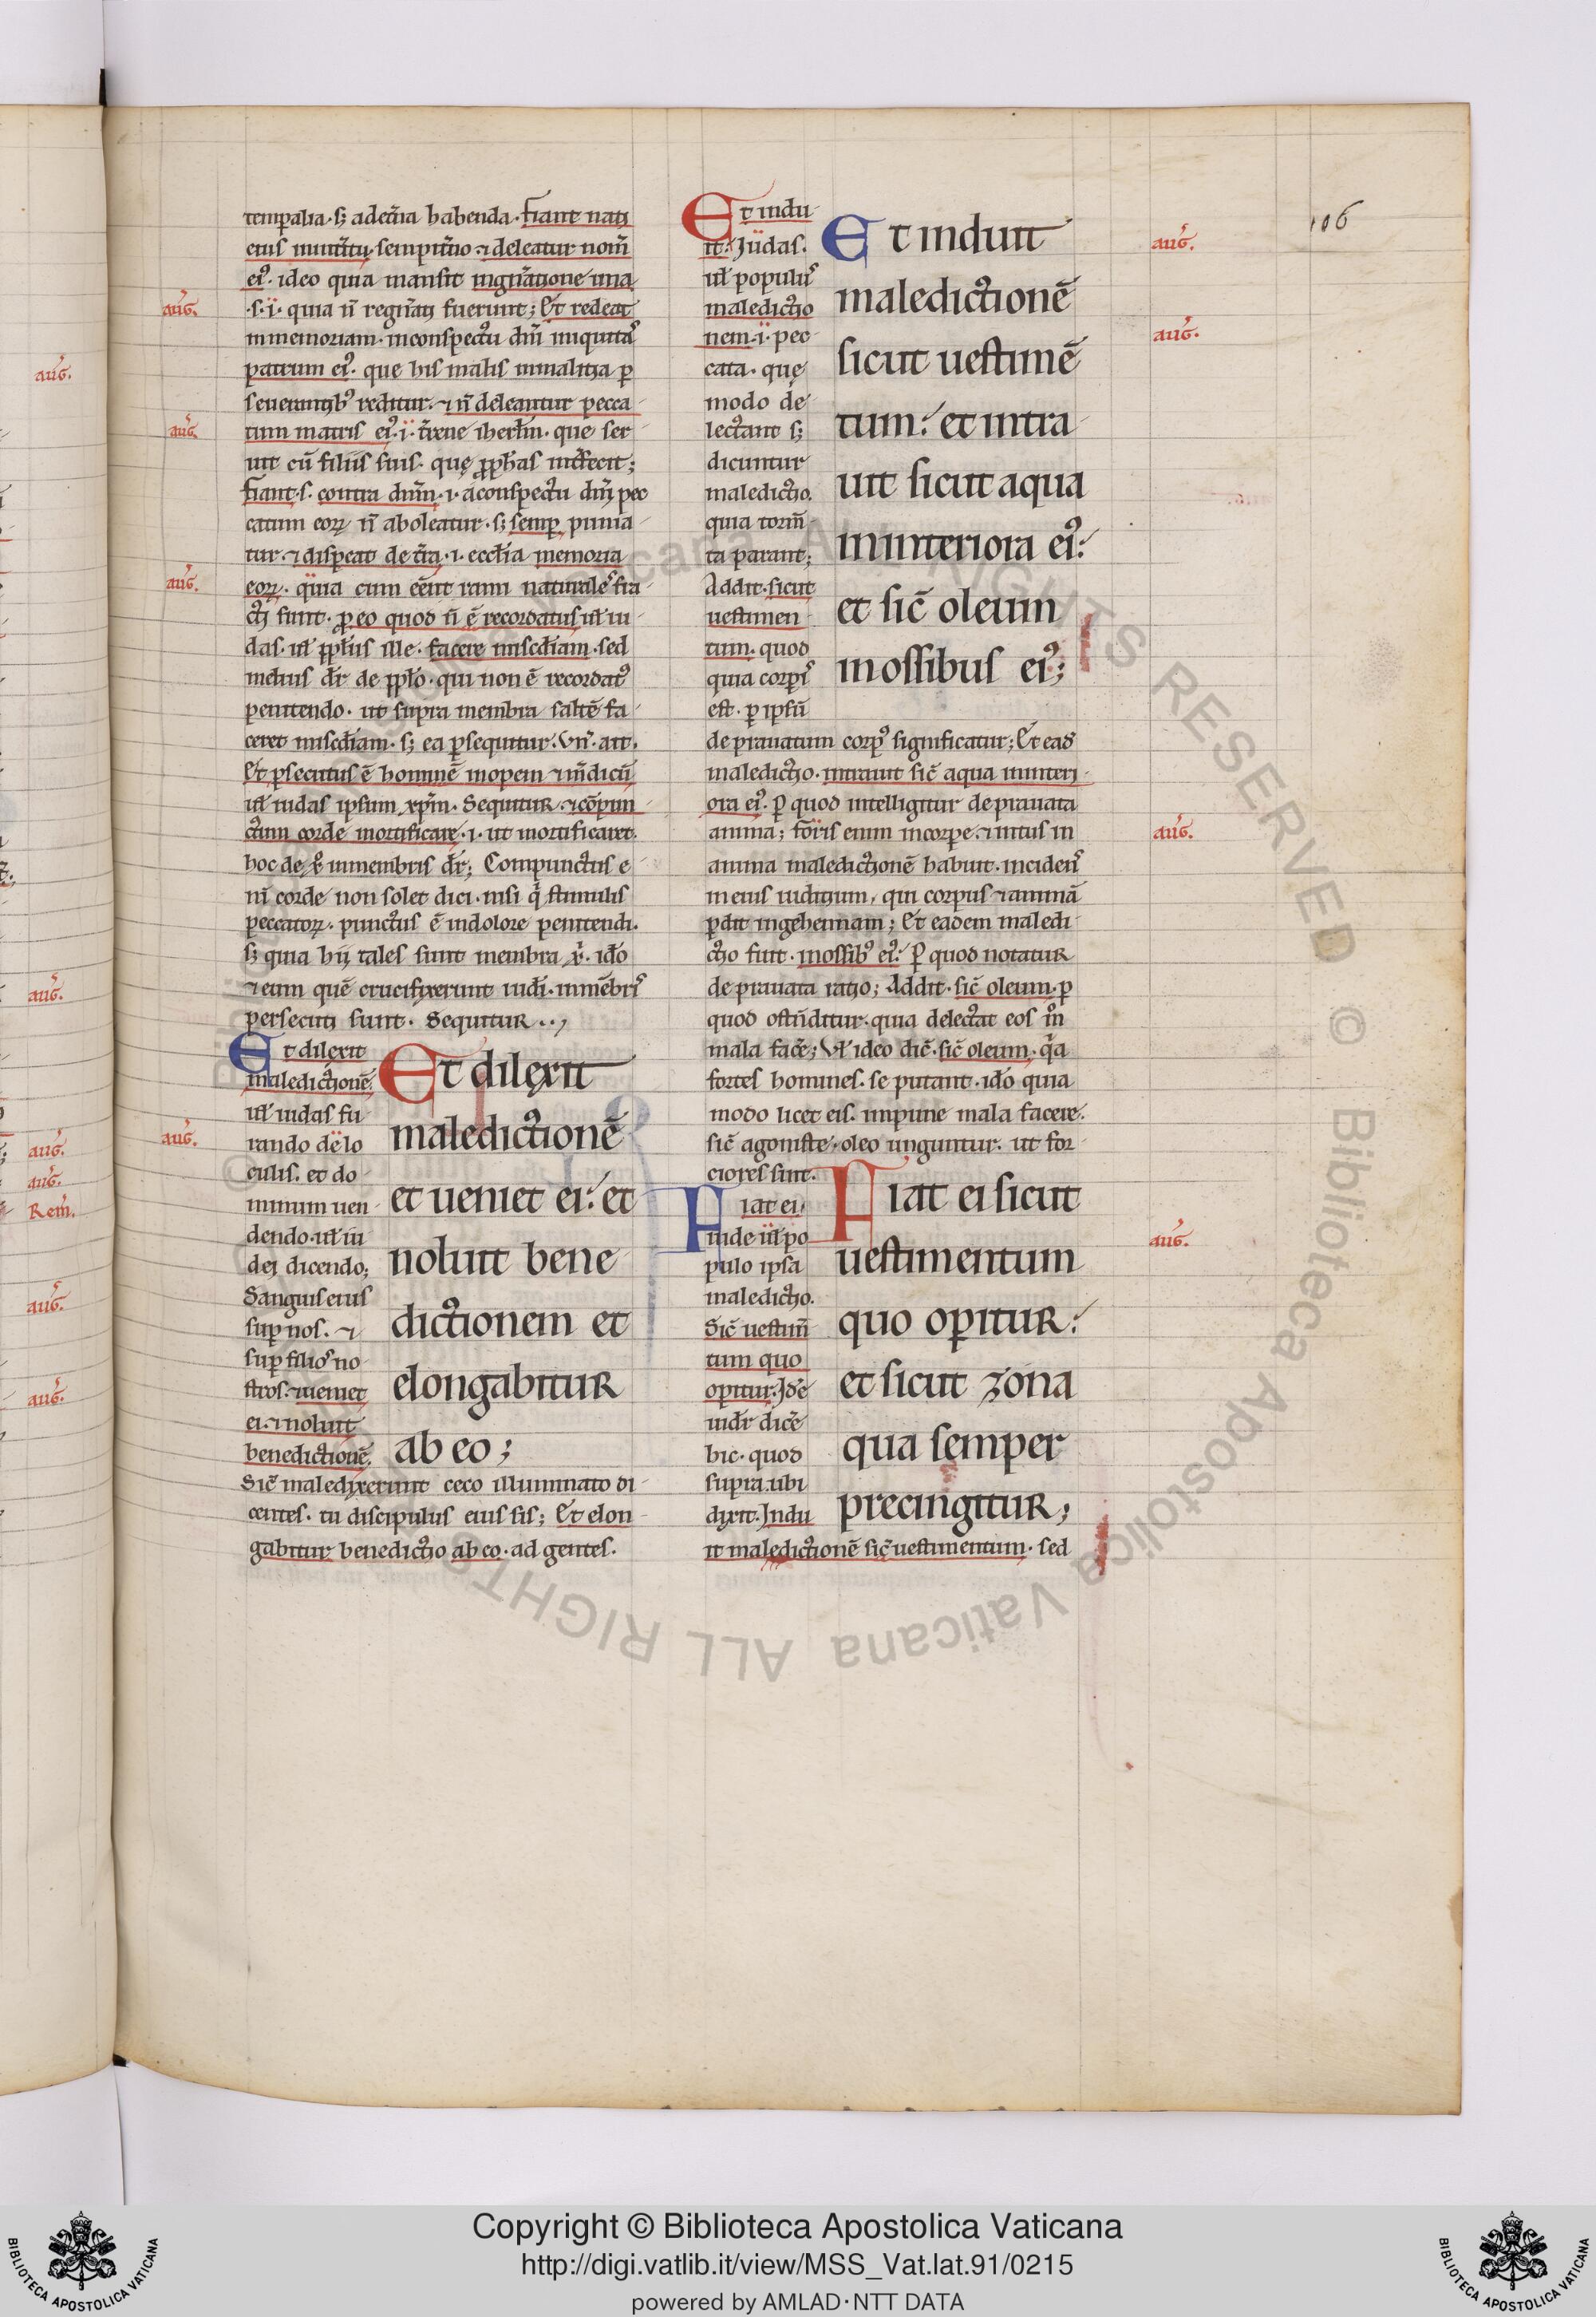 temp̄alia· sꝫ adet̄na habenda· fiant nati
eius inint̄itu· sempit̄no· ⁊ deleatur nom̄
eiꝰ· ideo quia mansit ingn̄atione una
·s·i· quia n̄ regn̄ati fuerunt; Et redeat
inmemoriam· inconspectu dn̄i iniquitas
patrum eiꝰ· que his malis inmalitia ꝑ
seuerantibꝰ redditur· ⁊ n̄ deleantur pecca
tum matris eiꝰ· i· t̄rene ih̄erlm̄· que ser
uit cū filiis suis· quę ꝓph̄as int̄fecit;
fiant· s· contra dn̄m· i· aconspectu dn̄i pec
catum eoꝝ n̄ aboleatur· sꝫ semꝑ punia
tur· ⁊ disꝑeat de t̄ra· i· eccl̄ia memoria
eoꝝ· quia cum eēnt rami naturales fra
cti sunt· ꝓ eo quod n̄ ē recordatus ul̄ iu
das· ul̄ ppl̄us ille· facere misc̄diam· sed
melius dr̄ de ppl̄o· qui non ē recordatꝰ
penitendo· ut supra membra saltē fa
ceret misc̄diam· sꝫ ea ꝑsequitur· Vn̄· ait·
Et ꝑsecutus ē hominē inopem ⁊ m̄dicū
ul̄ iudas ipsum xp̄m· Sequitur ⁊ cōpun
ctum corde mortificare· i· ut mortificaret·
hoc de xp̄o inmembris dr̄; Compunctus e
ni corde non solet dici· nisi q̄ stimulis
peccatoꝝ· punctus ē indolore penitendi·
sꝫ quia hii tales sunt membra x̄· ido
⁊ eum quē crucifixerunt iudi· inmēbris
persecuti sunt· Sequitur··,
Et dilexit
maledictionē
ul̄ iudas fu
rando de lo
culis· et do
minum uen
dendo· ul̄ iu
dei dicendo;
Sanguis eius
suꝑ nos· ⁊
suꝑ filios no
stros· ⁊ ueniet
ei· ⁊ noluit
benedictionē
Et dilexit
maledictionē
et ueniet ei: et
noluit bene
dictionem et
elongabitur
ab eo;
Sic̄ maledixerunt ceco illuminato di
centes· tu discipulus eius sis; Et elon
gabitur benedictio ab eo· ad gentes·
Et indu
it· Judas·
ul̄ populus
maledictio
nem· i· pec
cata· quę
modo de
lectant sꝫ
dicuntur
maledictio
quia torm̄
ta parant;
Addit· sicut
uestimen
tum· quod
quia corꝑis
est· ꝑ ipsū
Et induit
maledictionē
sicut uestimē
tum: et intra
uit sicut aqua
ininteriora eiꝰ:
et sic̄ oleum
inossibus eiꝰ;
deprauatum corpꝰ significatur; Et ead
maledictio· intrauit sic̄ aqua ininteri
ora eiꝰ· ꝑ quod intelligitur deprauata
anima; foris enim incorpe· ⁊ intus in
anima maledictionē habuit· incidens
ineius iuditium, qui corpus ⁊ animā
ꝑdit ingehennam; Et eadem maledi
ctio fuit· inossibꝰ eiꝰ· ꝑ quod notatur
deprauata ratio; Addit· sic̄ oleum· ꝑ
quod ostn̄ditur· quia delectat eos in
mala facē; Vl̄ ideo dic̄· sic̄ oleum· q̄a
fortes homines· se putant· ido quia
modo licet eis· impune mala facere·
sic̄ agoniste· oleo unguntur· ut for
ciores sint·
Fiat ei·
iude ul̄ po
pulo ipsa
maledictio·
Sic̄ uestim̄
tum quo
oꝑitur· Idē
uidr̄ dicē
hic· quod
supra· ubi
dixit· Indu
Fiat ei sicut
uestimentum
quo oꝑitur:
et sicut zona
qua semper
precingitur;
it maledictionē sic̄ uestimentum· sed
106
auḡ.
auḡ.
auḡ.
auḡ.
auḡ.
auḡ.
auḡ.
auḡ.
auḡ.
auḡ.
auḡ.
auḡ.
Rem̄.
auḡ.
auḡ.
Copyright © Biblioteca Apostolica Vaticana
http://digi.vatlib.it/view/MSS_Vat.lat.91/0215
powered by AMLAD·NTT DATA
BIBLIOTECA APOSTOLICA VATICANA
BIBLIOTECA APOSTOLICA VATICANA
© Biblioteca Apostolica Vaticana ALL RIGHTS RESERVED © Biblioteca Apostolica Vaticana ALL RIGHTS